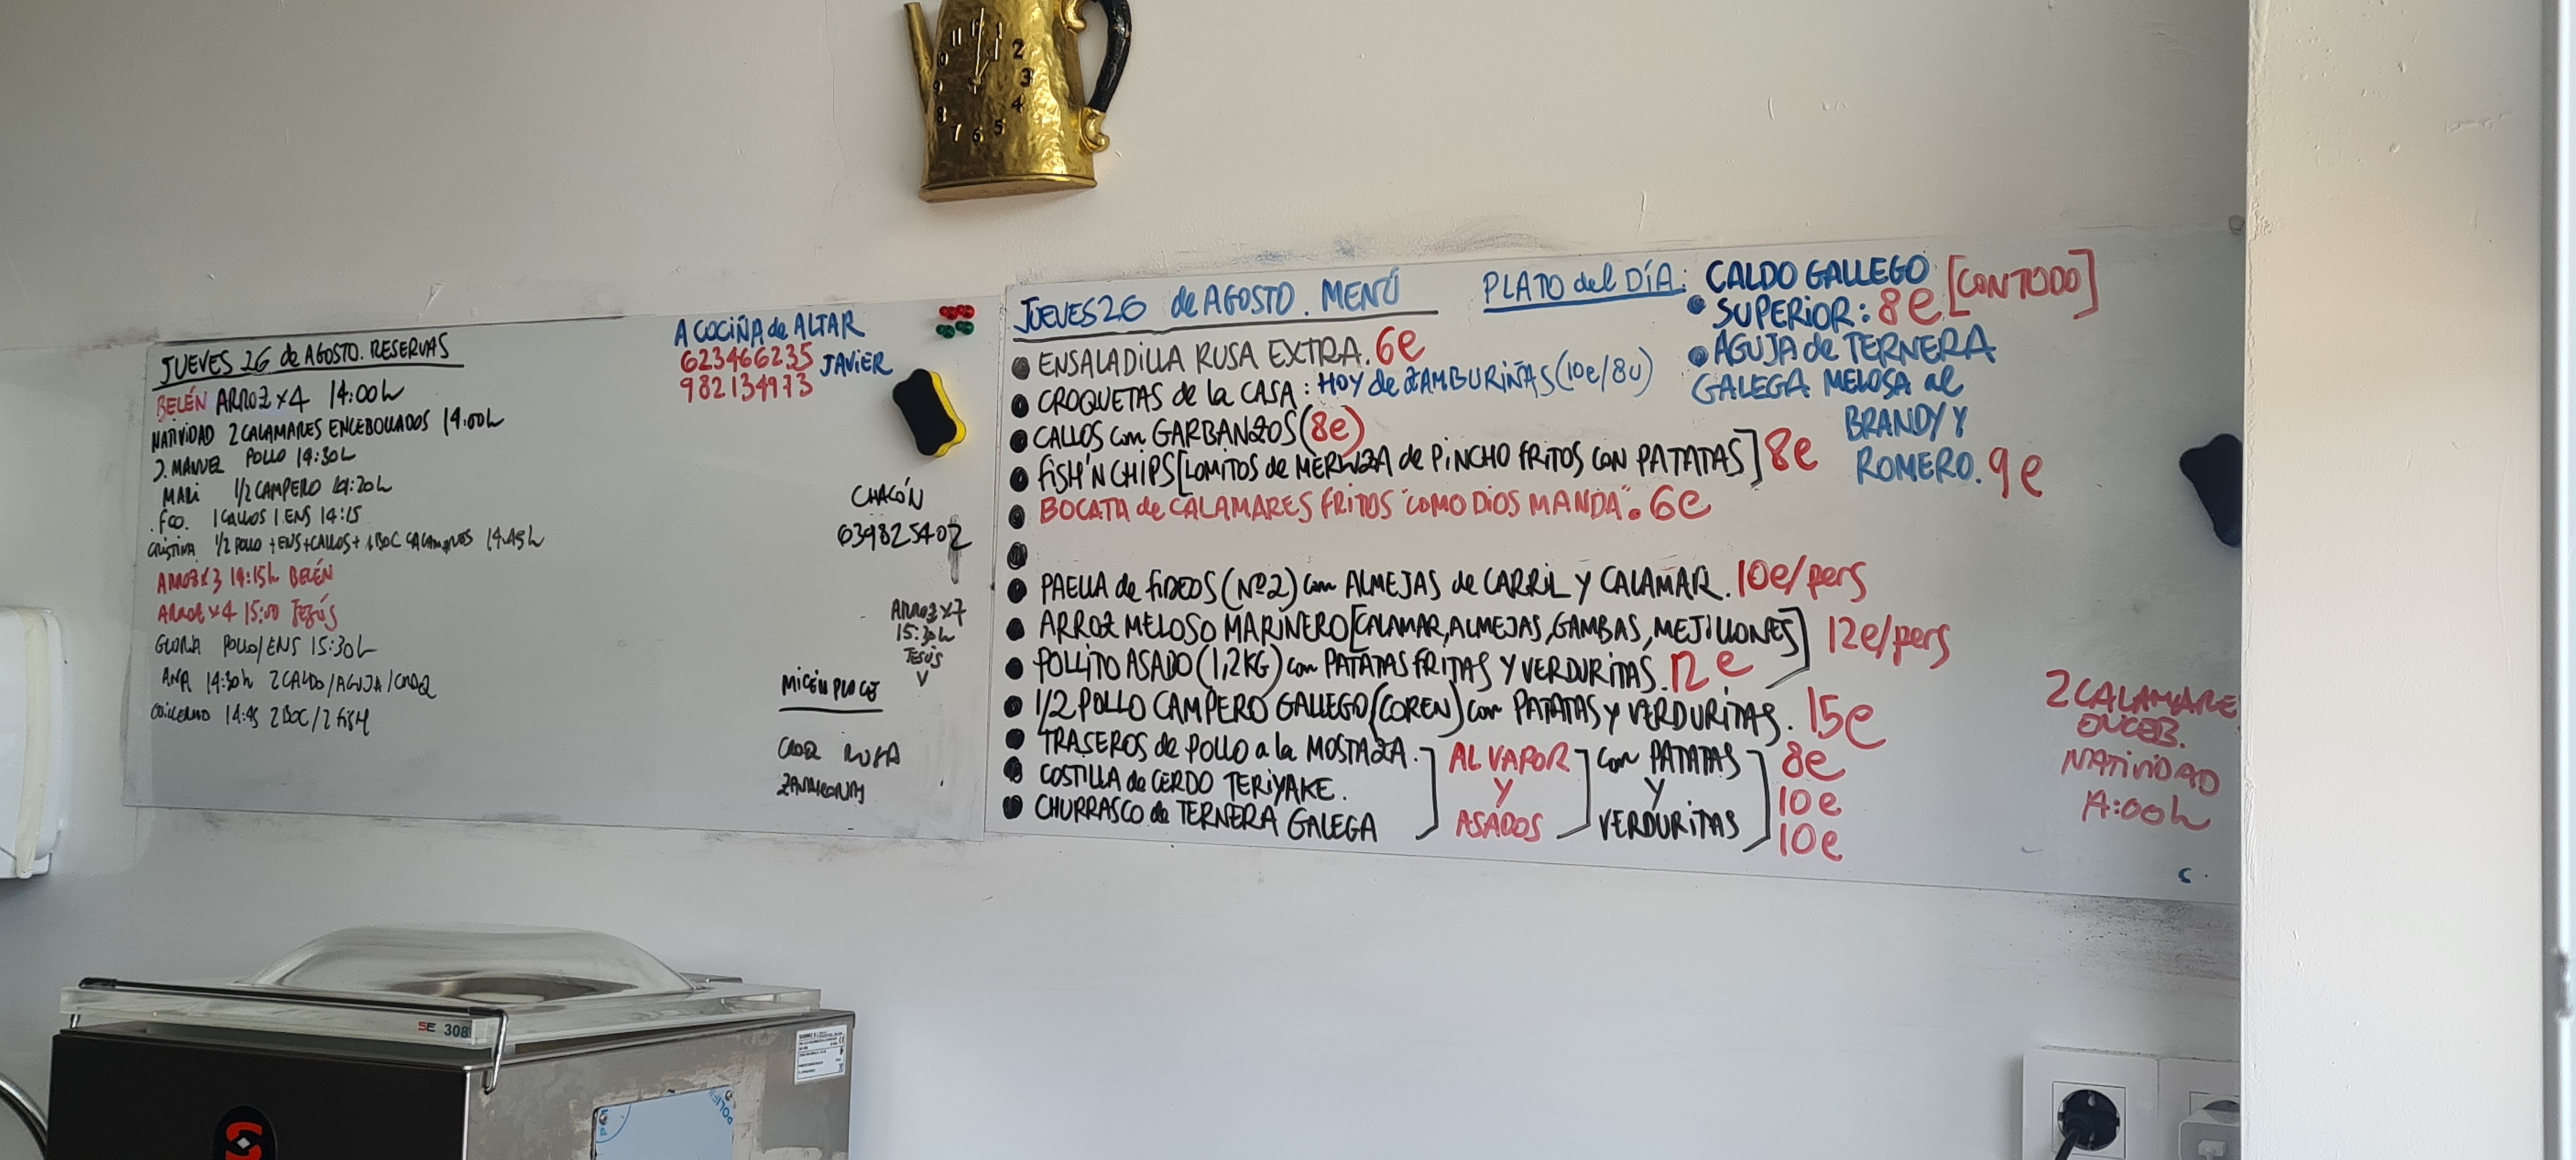 JUEVES 26 de AGOSTO. RESERVAS
BELÉN ARROZ x4 14:00h
NATIVIDAD 2 CALAMARES ENCEBOLLADOS 14:00h
J. MANUEL POLLO 14:30h
MARI 1/2 CAMPERO 14:20h
FCO. 1 CALLOS 1 ENS 14:15
CRISTINA 1/2 POLLO + ENS + CALLOS + 1 BOC CALAMARES 14:45h
ARROZ x3 14:15h BELÉN
ARROZ x4 15:00 JESÚS
GLORIA POLLO/ENS 15:30h
ANA 14:30h 2 CALDO/AGUJA/CROQ
GUILLERMO 14:45 2 BOC/2 FISH
A COCIÑA de ALTAR
623466235 JAVIER
982134973
CHACÓN
639825402
ARROZ x7
15:30h
JESÚS
CROQ RUSA
JUEVES 26 de AGOSTO. MENÚ
ENSALADILLA RUSA EXTRA. 6e
CROQUETAS de la CASA: HOY de ZAMBURIÑAS (10e/8U)
CALLOS con GARBANZOS (8e)
FISH'N CHIPS [LOMITOS de MERLUZA de PINCHO FRITOS CON PATATAS] 8e
BOCATA de CALAMARES FRITOS "COMO DIOS MANDA". 6e
PAELLA de FIDEOS (Nº2) con ALMEJAS de CARRIL Y CALAMAR. 10e/pers
ARROZ MELOSO MARINERO [CALAMAR, ALMEJAS, GAMBAS, MEJILLONES] 12e/pers
POLLITO ASADO (1,2KG) con PATATAS FRITAS Y VERDURITAS. 12e
1/2 POLLO CAMPERO GALLEGO (COREN) con PATATAS Y VERDURITAS. 15e
TRASEROS de POLLO a la MOSTAZA.
COSTILLA de CERDO TERIYAKE.
CHURRASCO de TERNERA GALEGA
AL VAPOR
Y
ASADOS
con PATATAS
Y
VERDURITAS
8e
10e
10e
PLATO del DÍA: CALDO GALLEGO
SUPERIOR: 8e [CON TODO]
AGUJA de TERNERA
GALEGA MELOSA al
BRANDY Y
ROMERO. 9e
2 CALAMARE
ENCEB.
NATIVIDAD
14:00h
SE 308